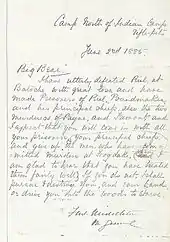 Camp North of Indian Camp
June 2nd 1885
Big Bear
I have utterly defeated Riel, at
Batoche with great loss and have
made Prisoners of Riel, Poundmaker
and his principal chiefs, also the two
murderers of Payne, and Fremont and
I expect that you will come in with all
your prisoners, your principal chiefs
and give up the men who have com-
mitted murders at Frog Lake, and I
am glad to hear that you have treated
them fairly well. If you do not, I shall
pursue and destroy you, and your band
or drive you into the woods to starve.
Fred Middleton
M. General